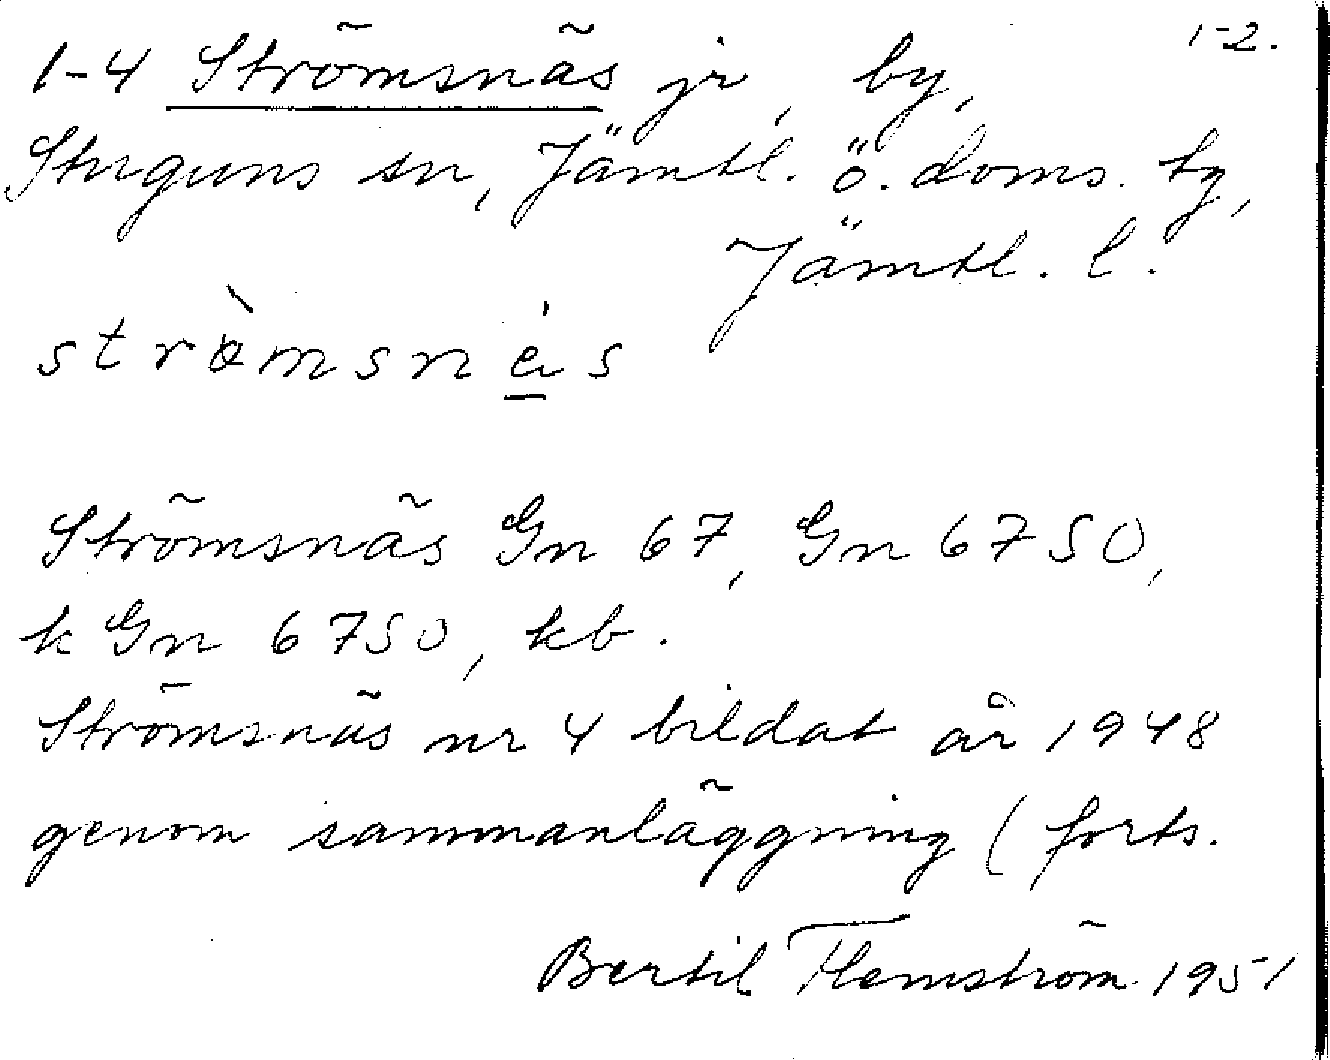 1-2.
1-4 Strömsnäs jr, by,
Stuguns sn, Jämtl. ö. doms. tg,
Jämtl. l.
Strömsnäs Gn 67, Gn 67 SO,
k Gn 67SO, kb.
Strömsnäs nr 4 bildat år 1948
genom sammanläggning (forts.
Bertil Flemström 1951